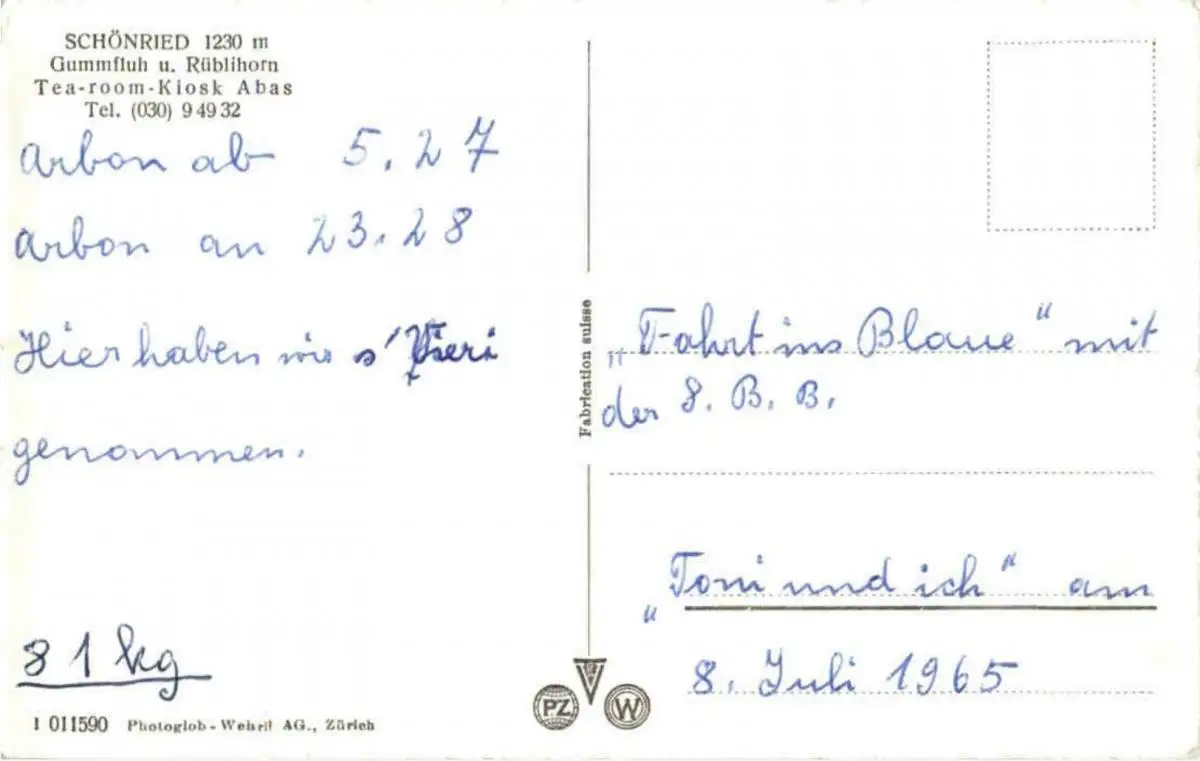 SCHÖNRIED 1230 m
Gummfluh u. Rüblihorn
Tea-room-Kiosk Abas
Tel. (030) 9 49 32
Arbon ab 5.27
Arbon an 23.28
Hier haben wir s'Vieri
genommen.
81 kg
1 011590 Photoglob-Wehrli AG., Zürich
Fabrication suisse
PZ
W
„Fahrt ins Blaue“ mit
der S. B. B.
„Toni und ich“ am
8. Juli 1965